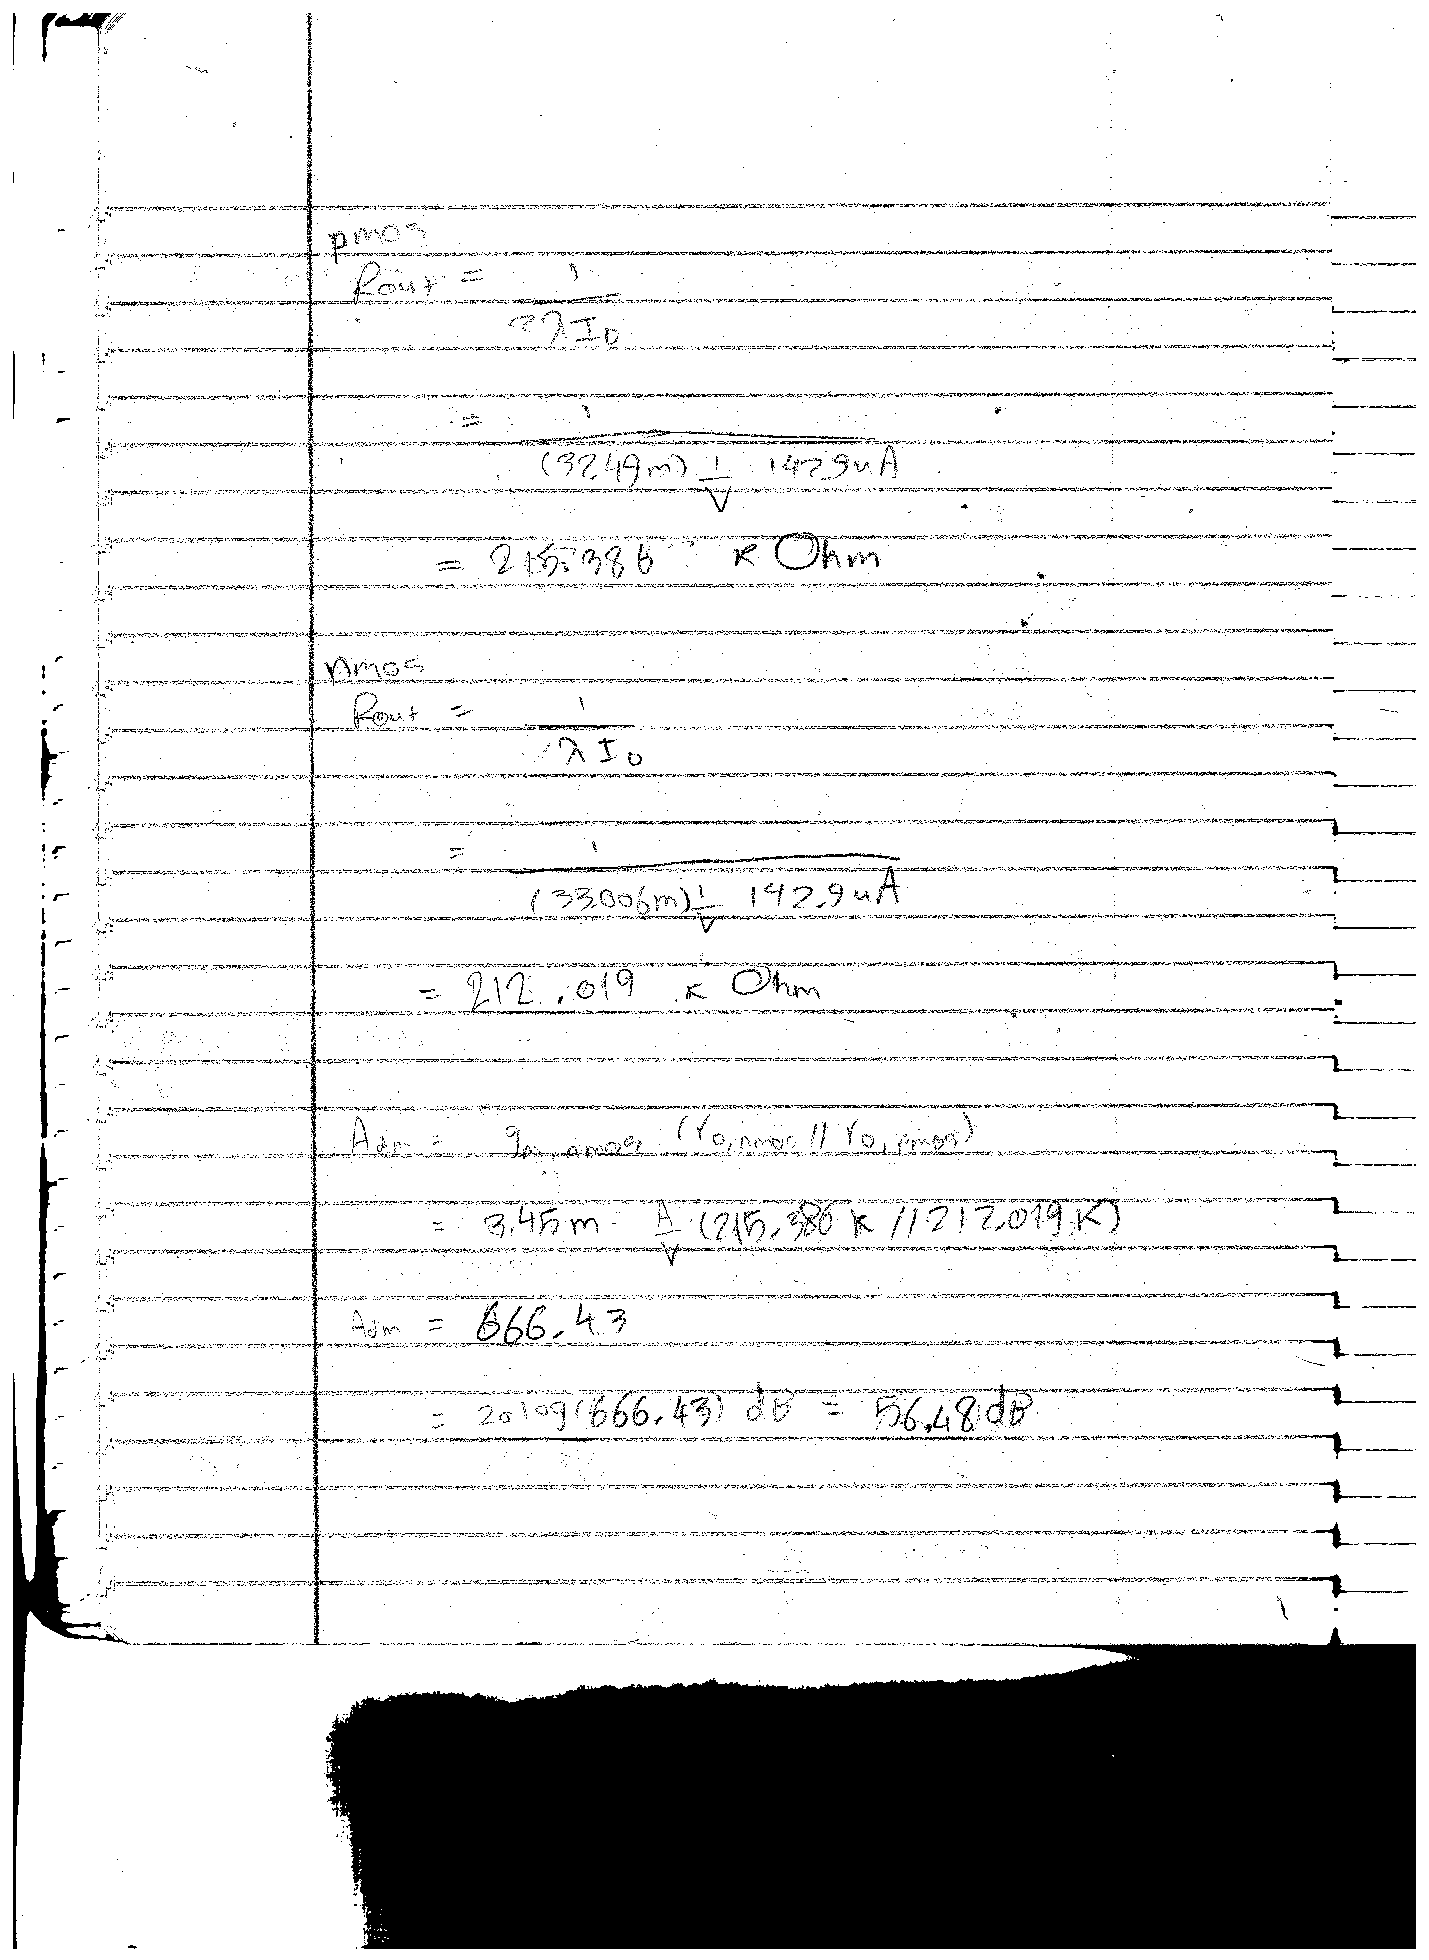 pmos
Rout = 1
λ I D
= 1
(32.49m) 1/V 142.9uA
= 215.386 K Ohm
nmos
Rout = 1
λ I D
= 1
(33.006m) 1/V 142.9uA
= 212.019 K Ohm
Adm = gm,nmos (ro,nmos // ro,pmos)
= 3.45m A/V (215.386 K // 212.019 K)
Adm = 666.43
= 20log(666.43) dB = 56.48 dB